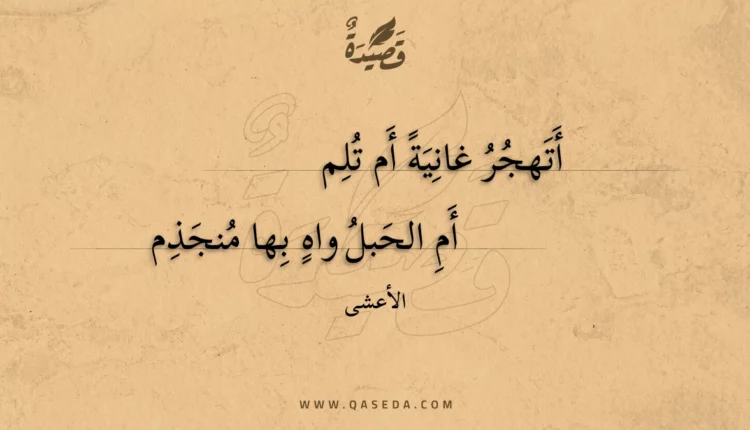 قَصِيدَةٌ
أَتَهجُرُ غانِيَةً أَم تُلِم
أَمِ الحَبلُ واهٍ بِها مُنجَذِم
الأعشى
WWW.QASEDA.COM